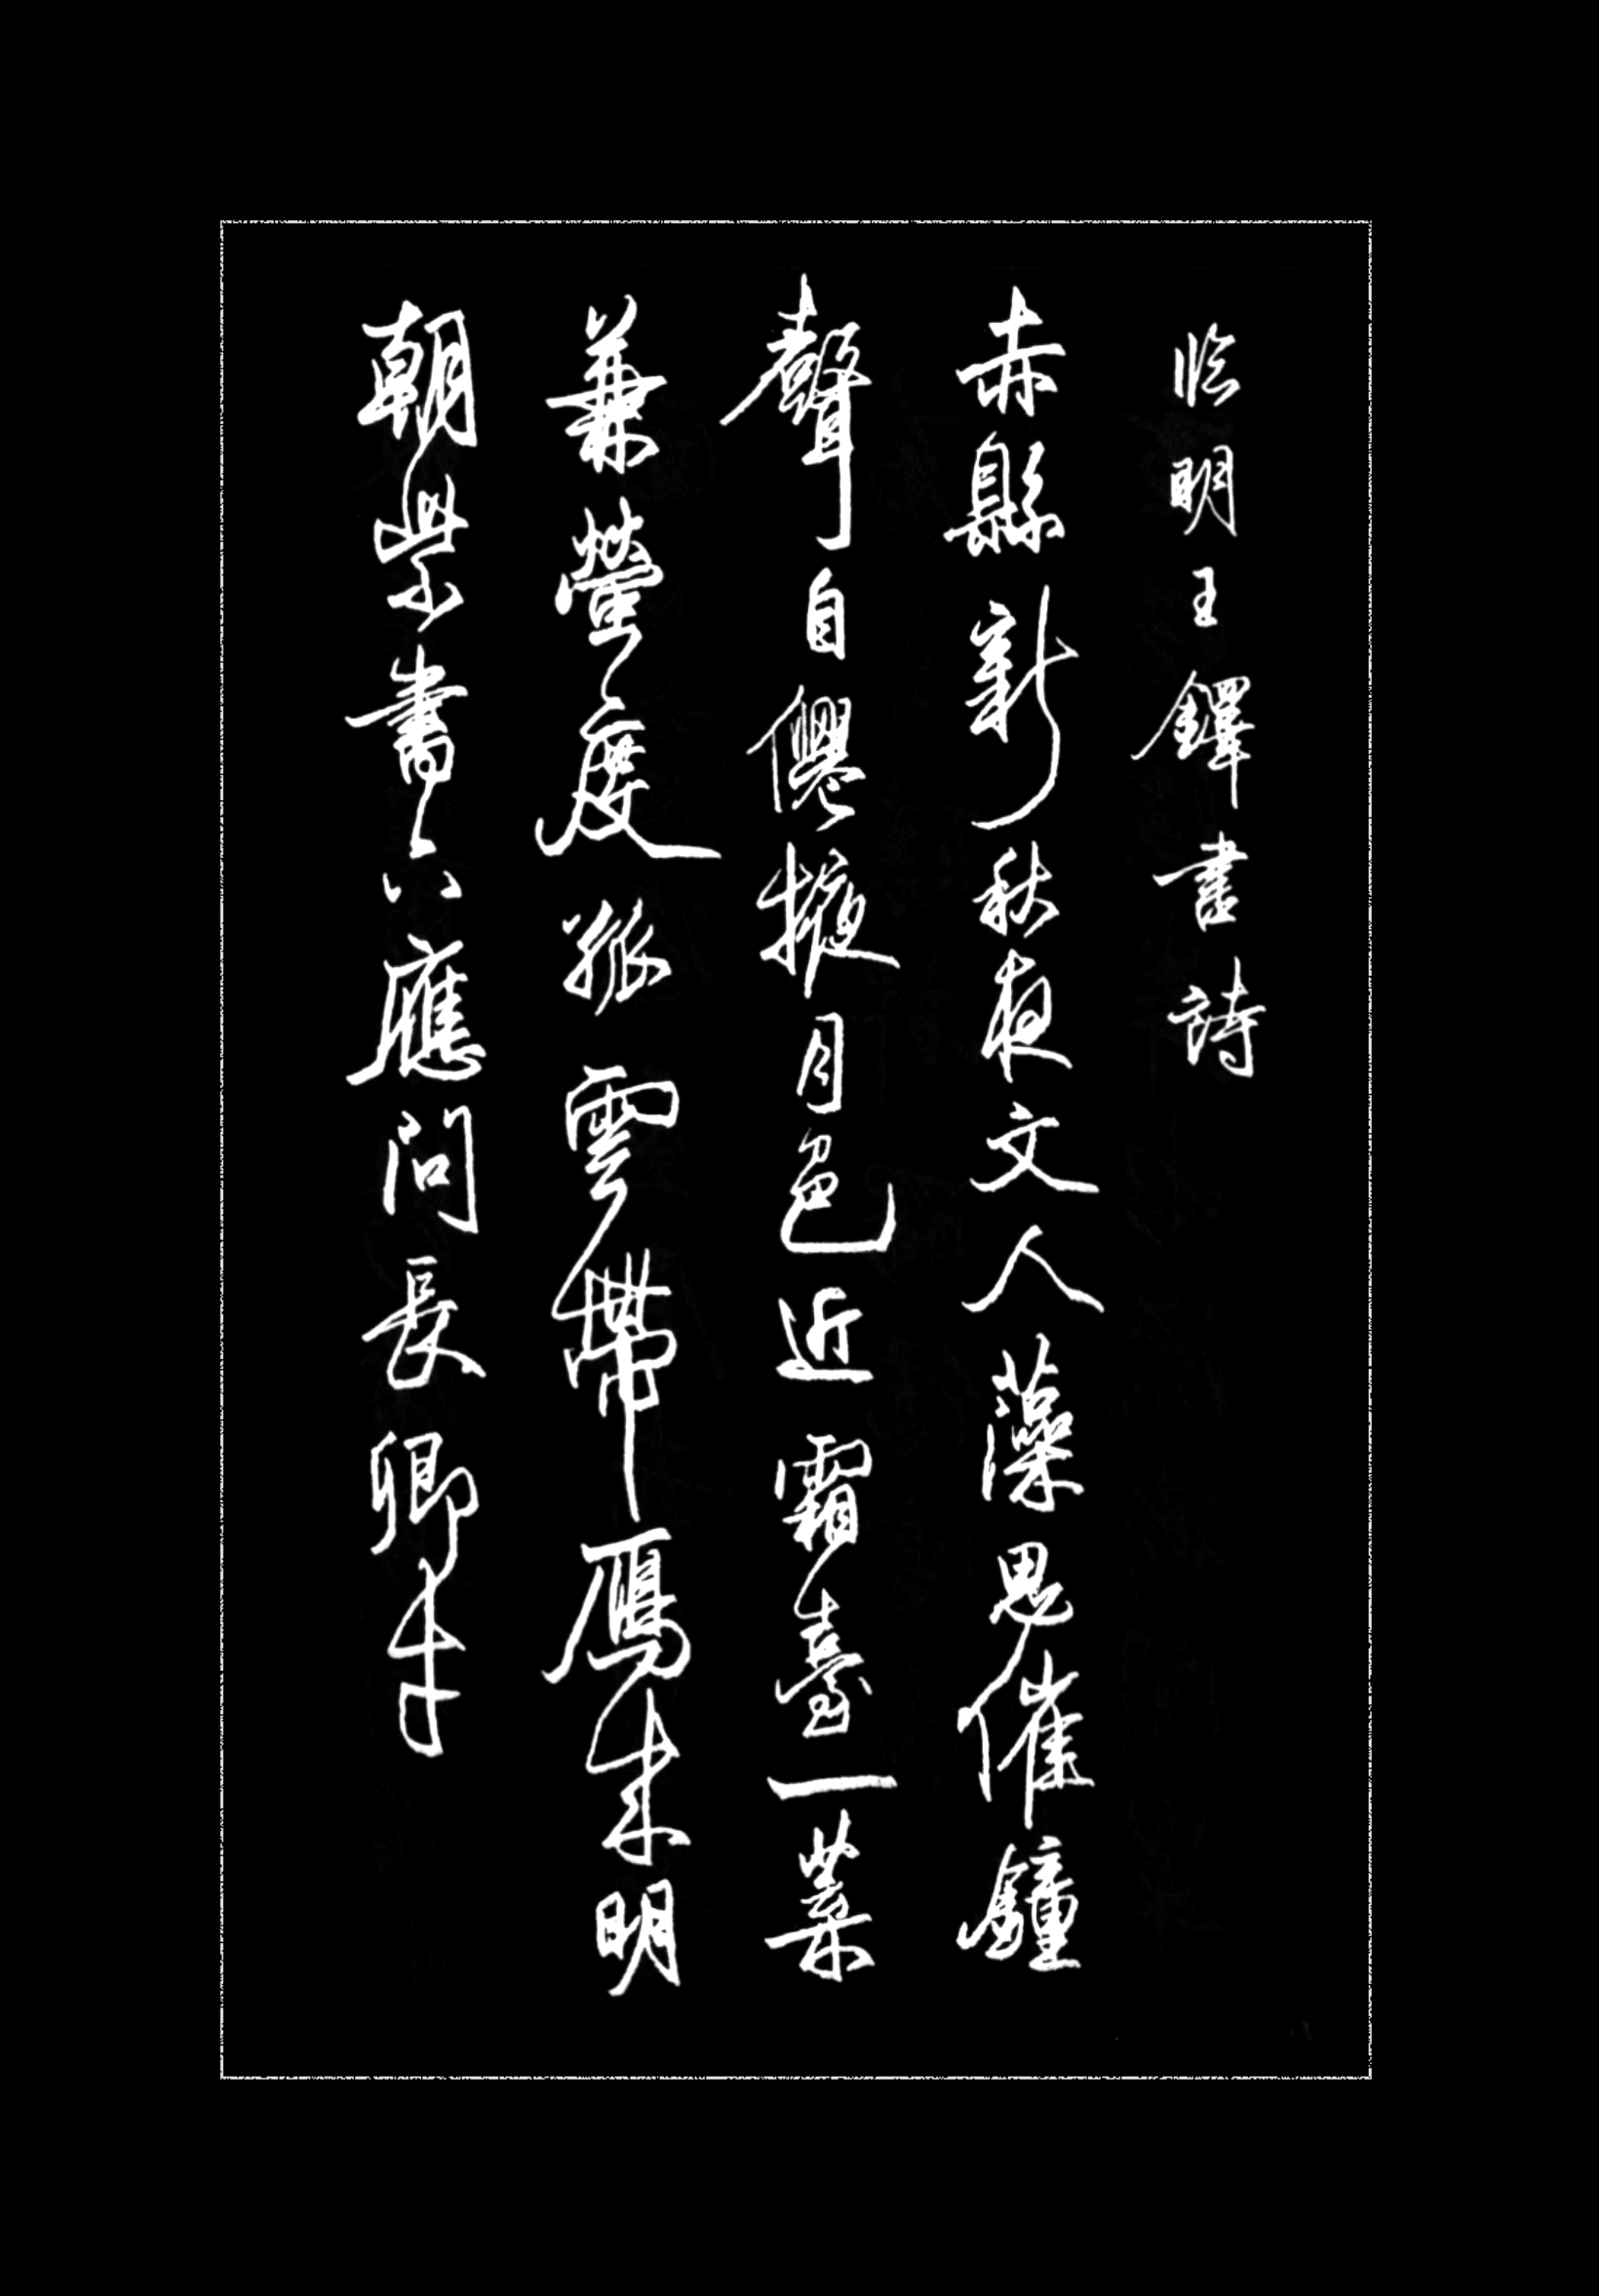 临明王鐸書詩
赤縣新秋夜文人藻思催鐘
聲自僊掖月色近霜臺一葉
兼螢度孤雲帶鴈來明
朝紫書下應問長卿才